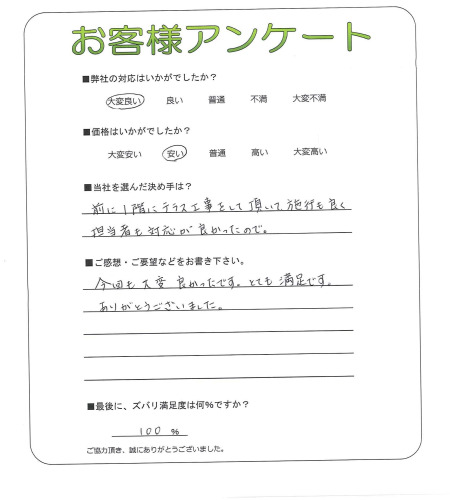 お客様アンケート
■弊社の対応はいかがでしたか?
大変良い 良い 普通 不満 大変不満
■価格はいかがでしたか?
大変安い 安い 普通 高い 大変高い
■当社を選んだ決め手は?
前に1階にテラス工事をして頂いて施行も良く
担当者も対応が良かったので。
■ご感想・ご要望などをお書き下さい。
今回も大変良かったです。とても満足です。
ありがとうございました。
■最後に、ズバリ満足度は何%ですか?
100 %
ご協力頂き、誠にありがとうございました。